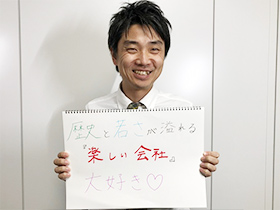 歴史と若さが溢れる
『楽しい会社』
大好き♡